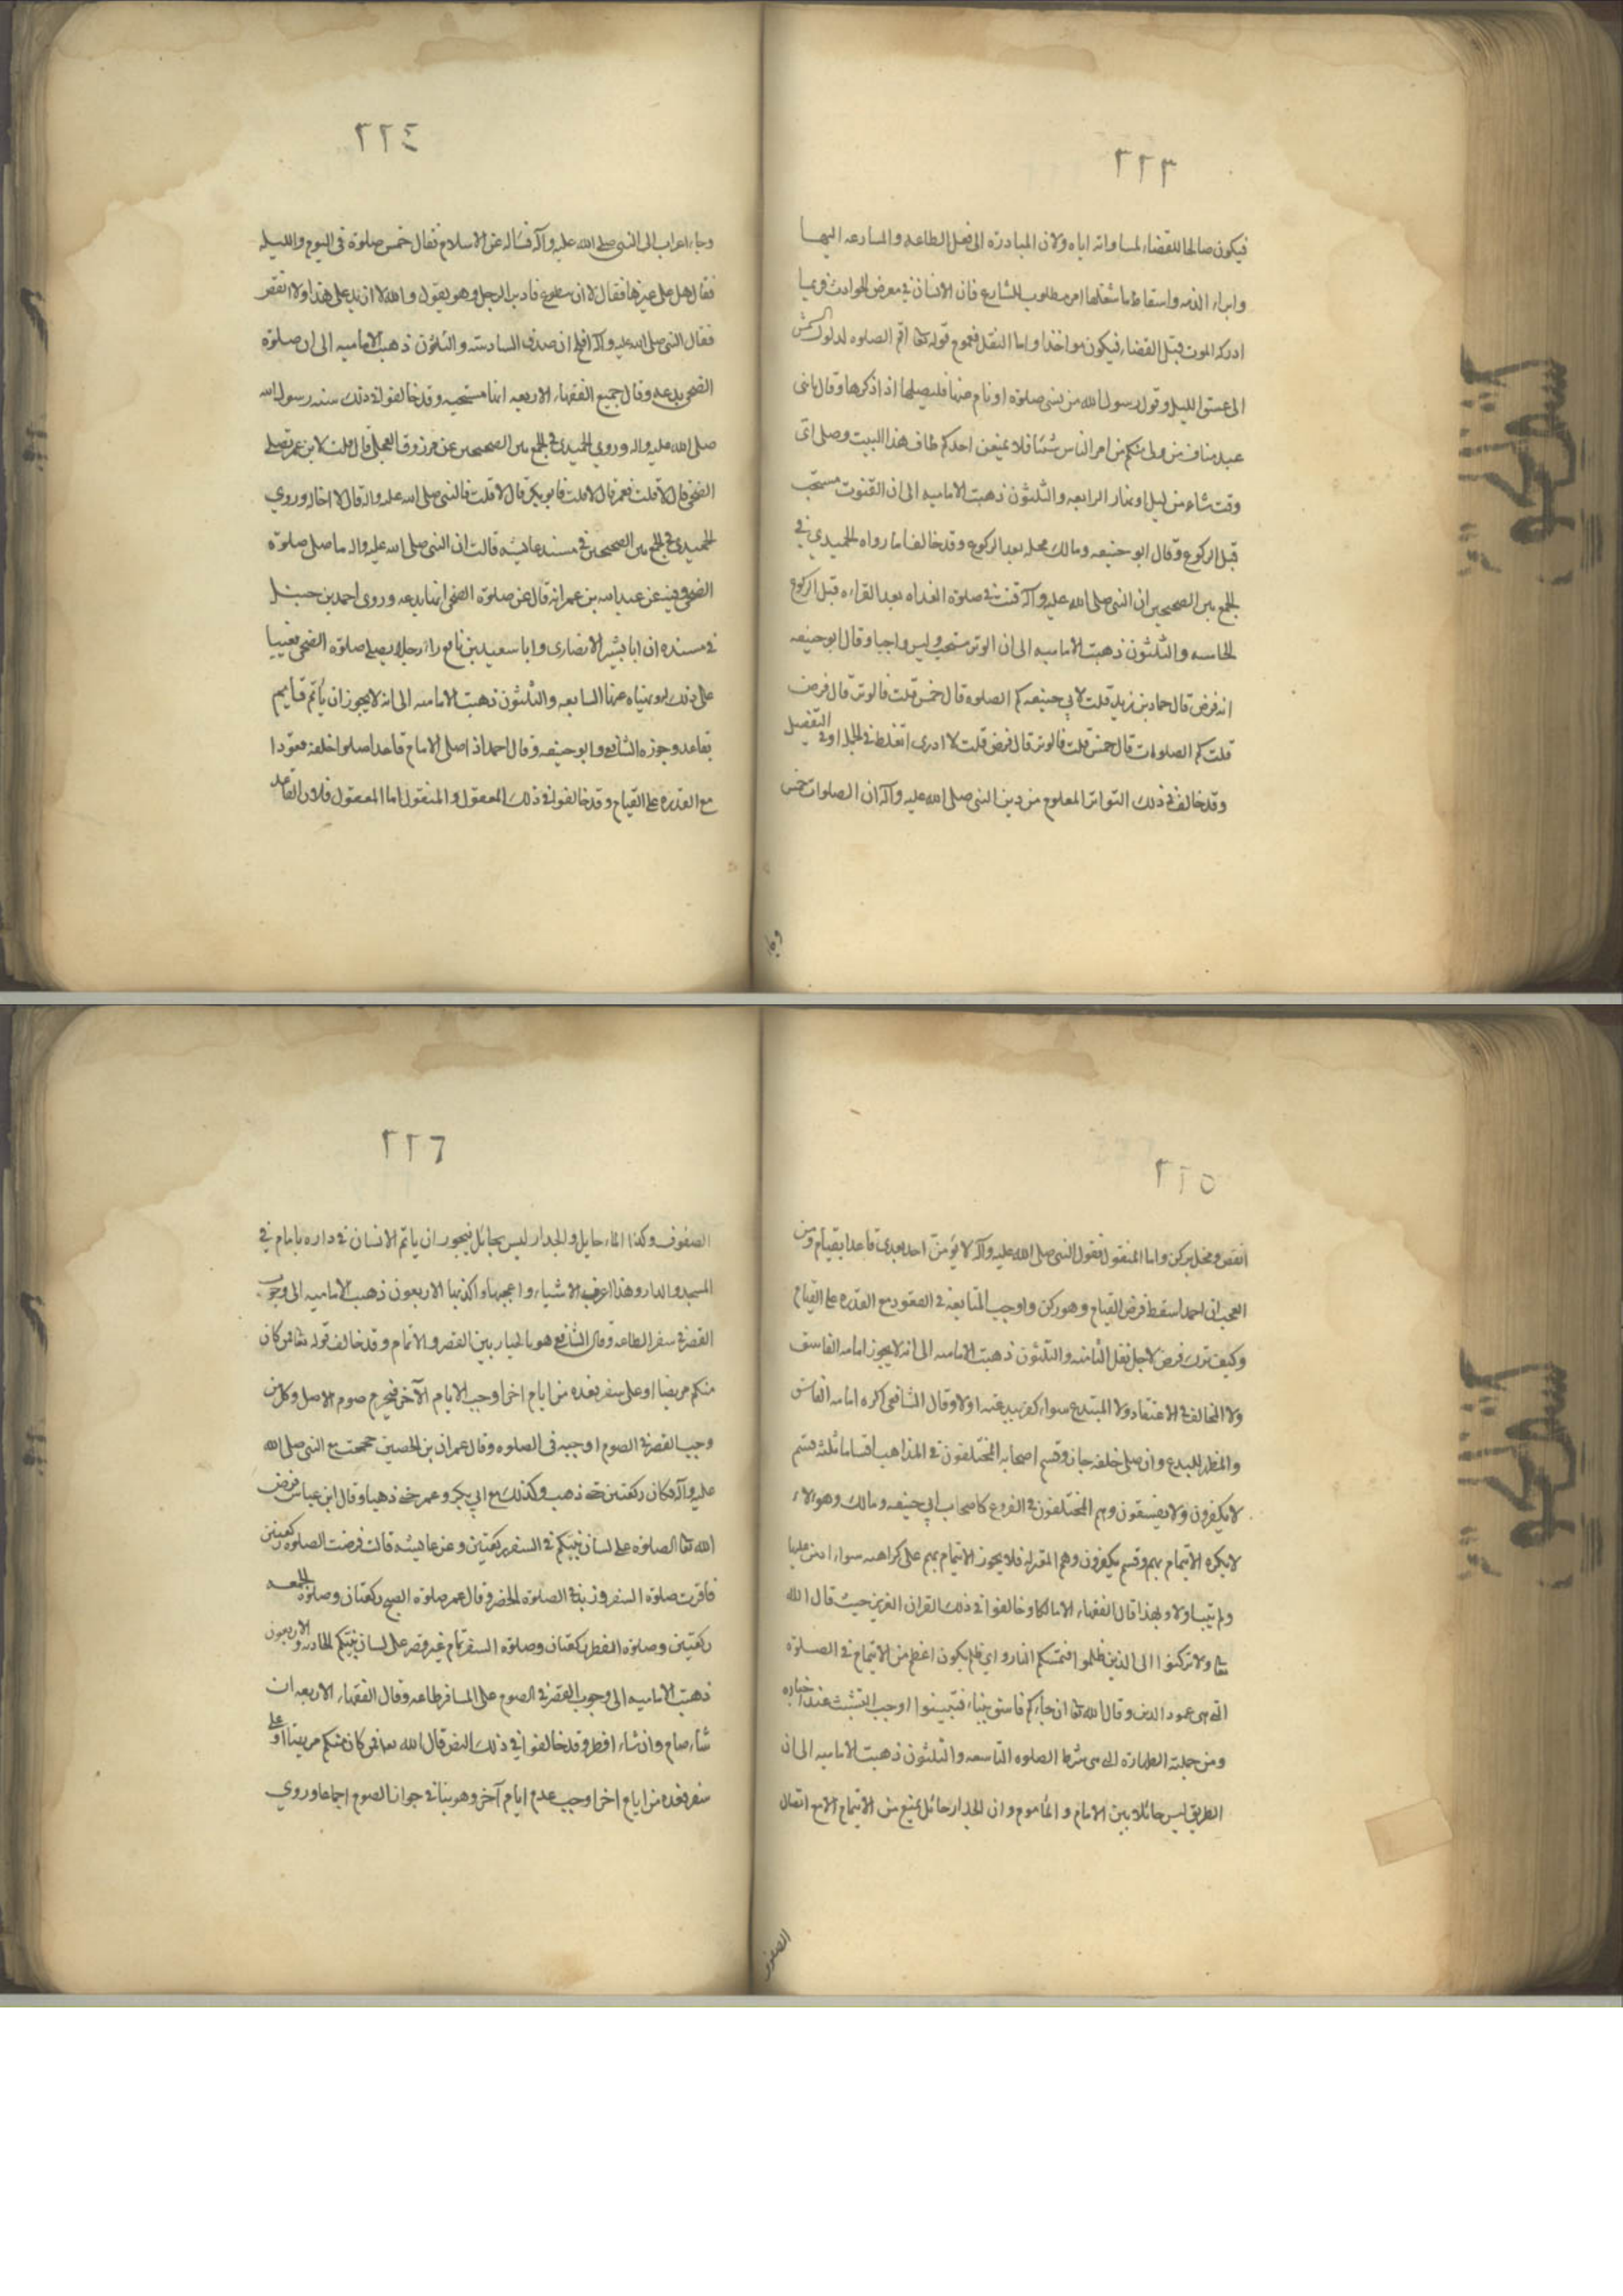 ٢٢٣
فيكون صالحا للقضاء لمساواته اياه ولان المبادرة الى فعل الطاعه والمسارعه اليها
وابراء الذمه واسقاط ما شغلها امر مطلوب للشارع فان الانسان في معرض الحوادث فربما
ادركه الموت قبل القضاء فيكون مواخذا واما النقل فعموم قوله تعا اقم الصلوه لدلوك الشمس
الى غسق الليل وقول رسول الله من نسى صلوة او نام عنها فليصلها اذا ذكرها وقال يا بنى
عبد مناف من ولى منكم من امر الناس شيئا فلا يمنعن احدكم طاف هذا البيت وصلى اى
وقت شاء من ليل او نهار الرابعه والثلثون ذهبت الاماميه الى ان القنوت مستحب
قبل الركوع وقال ابو حنيفه ومالك محله بعد الركوع وقد خالفا ما رواه الحميدى في
الجمع بين الصحيحين ان النبى صلى الله عليه وآله قنت في صلوة الغداه بعد القراءه قبل الركوع
الخامسه والثلثون ذهبت الاماميه الى ان الوتر مستحب وليس واجبا وقال ابو حنيفه
انه فرض قال حماد بن زيد قلت لابي حنيفه كم الصلوه قال خمس قلت فالوتر قال فرض
قلت كم الصلوات قال خمس قلت فالوتر قال فرض قلت لا ادرى اتغلط في الجمله او في التفصيل
وقد خالف في ذلك التواتر المعلوم من دين النبى صلى الله عليه وآله ان الصلوات خمس
وجاء
٢٢٤
وجاء اعرابى الى النبى صلى الله عليه وآله فسأله عن الاسلام فقال خمس صلوة في اليوم والليله
فقال هل على غيرها فقال لا ان تطوع فادبر الرجل وهو يقول والله لا ازيد على هذا ولا انقص
فقال النبى صلى الله عليه وآله افلح ان صدق السادسة والثلثون ذهبت الاماميه الى ان صلوة
الضحى بدعه وقال جميع الفقهاء الاربعه انها مستحبه وقد خالفوا في ذلك سنه رسول الله
صلى الله عليه واله وروى الحميدى في الجمع بين الصحيحين عن مرزوق العجلى قال قلت لابن عمر تصلى
الضحى قال لا قلت فعمر قال لا قلت فابو بكر قال لا قلت فالنبى صلى الله عليه واله قال لا اخاله وروي
الحميدى في الجمع بين الصحيحين في مسند عائشه قالت ان النبى صلى الله عليه واله ما صلى صلوة
الضحى وفيه عن عبد الله بن عمر انه قال عن صلوة الضحى انها بدعه وروى احمد بن حنبل
في مسنده ان ابا بشير الانصارى وابا سعيد بن نافع رأى رجلا يصلى صلوة الضحى فعيبا
على ذلك ونهياه عنها السابعه والثلثون ذهبت الاماميه الى انه لا يجوز ان يأتم قايم
بقاعد وجوزه الشافعي وابو حنيفه وقال احمد اذا صلى الامام قاعدا صلوا خلفه قعودا
مع القدره على القيام وقد خالفوا في ذلك المعقول والمنقول اما المعقول فلان القاعد
٢٢٥
انقص ومخل بركن واما المنقول فقول النبى صلى الله عليه وآله لا يؤمن احد بعدى قاعدا بقيام ومن
العجب ان احمد اسقط فرض القيام وهو ركن واوجب المتابعه في القعود مع القدره على القيام
وكيف ترك فرض لاجل نفل الثامنه والثلثون ذهبت الاماميه الى انه لا يجوز امامه الفاسق
ولا المخالف في الاعتقاد ولا المبتدع سواء كفر ببدعته او لا وقال الشافعى اكره امامه الفاسق
والمظهر للبدع وان صلى خلفه جاز وقسم اصحابه المختلفون في المذاهب اقساما ثلثه قسم
لا يكفرون ولا يفسقون وهم المختلفون في الفروع كاصحاب ابى حنيفه ومالك وهولاء
لا يكره الايتمام بهم وقسم يكفرون وهم المعتزله فلا يجوز الايتمام بهم على كراهيه سواء
ولم يتب اولا وبهذا قال الفقهاء الا مالكا وخالفوا في ذلك القران العزيز حيث قال الله
تعا ولا تركنوا الى الذين ظلموا فتمسكم النار واى ظلم يكون اعظم من الايتمام في الصلوة
التى هى عمود الدين وقال الله تعا ان جاءكم فاسق بنباء فتبينوا اوجب التثبت عند اخباره
ومن جملته الطهارة التى هى شرط الصلوه التاسعه والثلثون ذهبت الاماميه الى ان
الطريق ليس حائلا بين الامام و المأموم وان الجدار حائل يمنع من الايتمام الا مع اتصال
الصفوف
٢٢٦
الصفوف وكذا الماء حايل والجدار ليس بحائل فيجوز ان ياتم الانسان في داره بامام في
المسجد والدار وهذا اغرب الاشياء واعجبها واكذبها الاربعون ذهبت الاماميه الى وجوب
القصر في سفر الطاعه وقال الشافعي هو بالخيار بين القصر والاتمام وقد خالف قوله تعا فمن كان
منكم مريضا او على سفر فعده من ايام اخر اوجب الايام الآخر فيحرم صوم الاصل وكل من
وجب القصر في الصوم اوجبه في الصلوه وقال عمران بن الحصين حججت مع النبى صلى الله
عليه وآله فكان ركعتين حتى ذهب وكذلك مع ابي بكر وعمر حتى ذهبا وقال ابن عباس فرض
الله تعا الصلوة على لسان نبيكم في السفر ركعتين وعن عائشه قالت فرضت الصلوة ركعتين
فاقرت صلوة السفر وزيد في الصلوة الحضر وقال عمر صلوة الصبح ركعتان وصلوة الجمعه
ركعتين وصلوة الفطر ركعتان وصلوة السفر تمام غير قصر على لسان نبيكم الحاديه والاربعون
ذهبت الاماميه الى وجوب القصر في الصوم على المسافر طاعه وقال الفقهاء الاربعه ان
شاء صام وان شاء افطر وقد خالفوا في ذلك النص قال الله تعا فمن كان منكم مريضا او على
سفر فعده من ايام اخر اوجب عدم ايام آخر وهو ينافي جواز الصوم اجماعا وروي